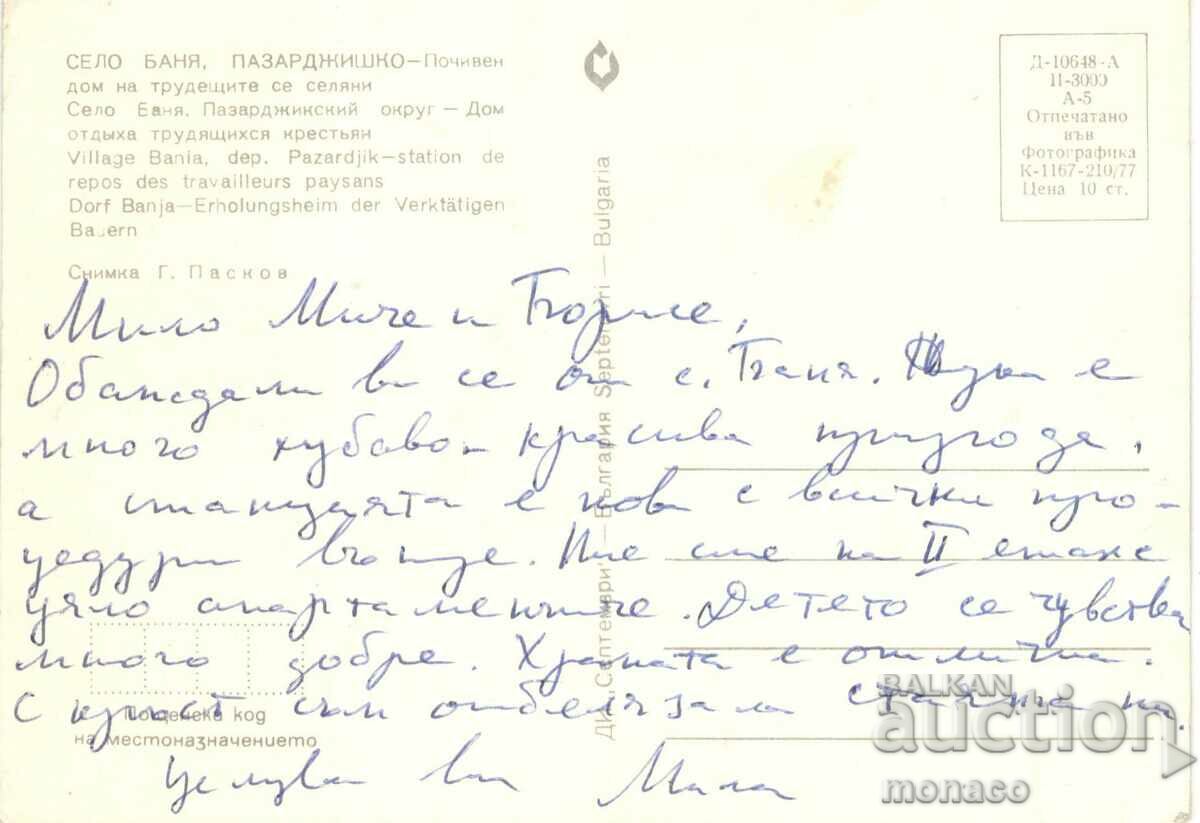 СЕЛО БАНЯ, ПАЗАРДЖИШКО—Почивен
дом на трудещите се селяни
Село Баня, Пазарджикский округ — Дом
отдыха трудящихся крестьян
Village Bania, dep. Pazardjik—station de
repos des travailleurs paysans
Dorf Banja—Erholungsheim der Verktätigen
Bauern
Снимка Г. Пасков
Д-10648-А
II-3000
А-5
Отпечатано
във
Фотографика
К-1167-210/77
Цена 10 ст.
ДИ „Септември" — България Septemvri — Bulgaria
Мило Миче и Борисе,
Обаждам ви се от с. Баня. Тук е
много хубаво - красива природа,
а станцията е нова с всички про-
цедури вътре. Ние сме на II етаж
цяло апартаментче. Детето се чувства
много добре. Храната е отлична.
С кръст съм отбелязала стаята ни.
Целува ви Мала
Пощенски код
на местоназначението
BALKAN
auction
monaco